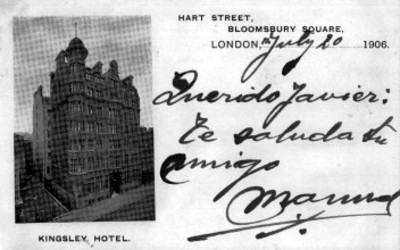 HART STREET,
BLOOMSBURY SQUARE,
LONDON, July 20 1906.
Querido Javier:
te saluda tu
amigo
Manuel
KINGSLEY HOTEL.